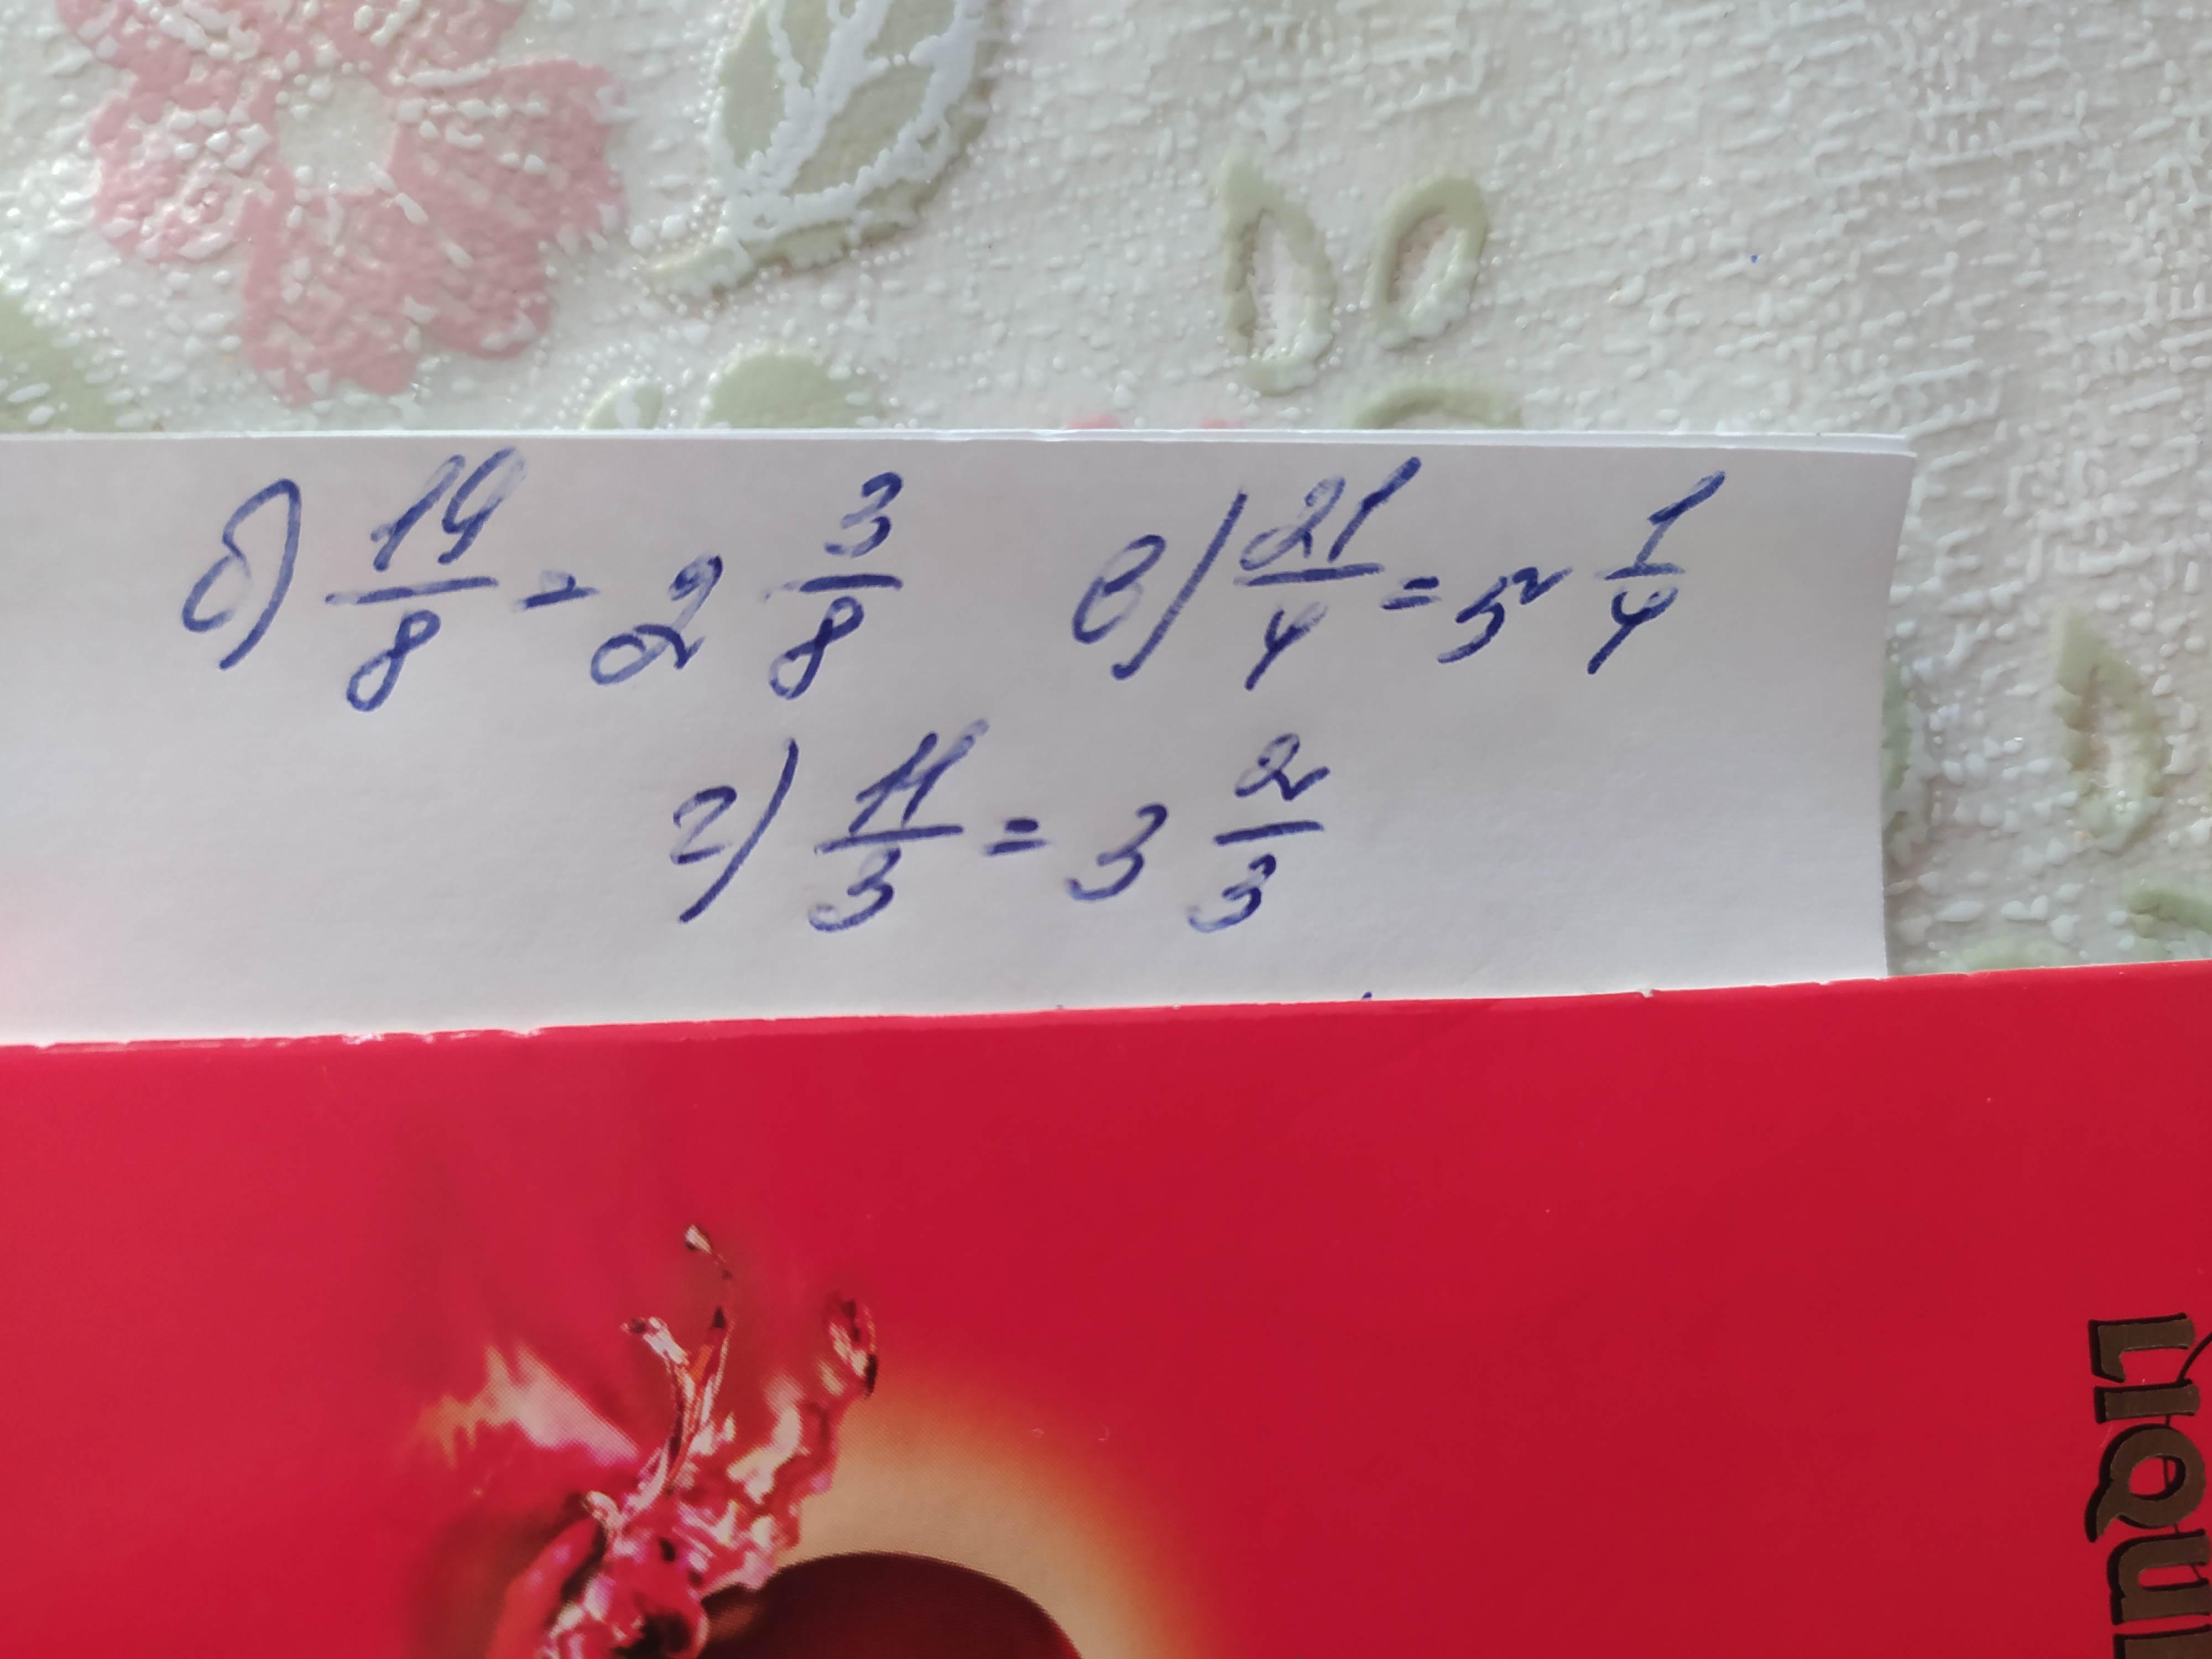 б) 19/8 = 2 3/8 в) 21/4 = 5 1/4
г) 11/3 = 3 2/3